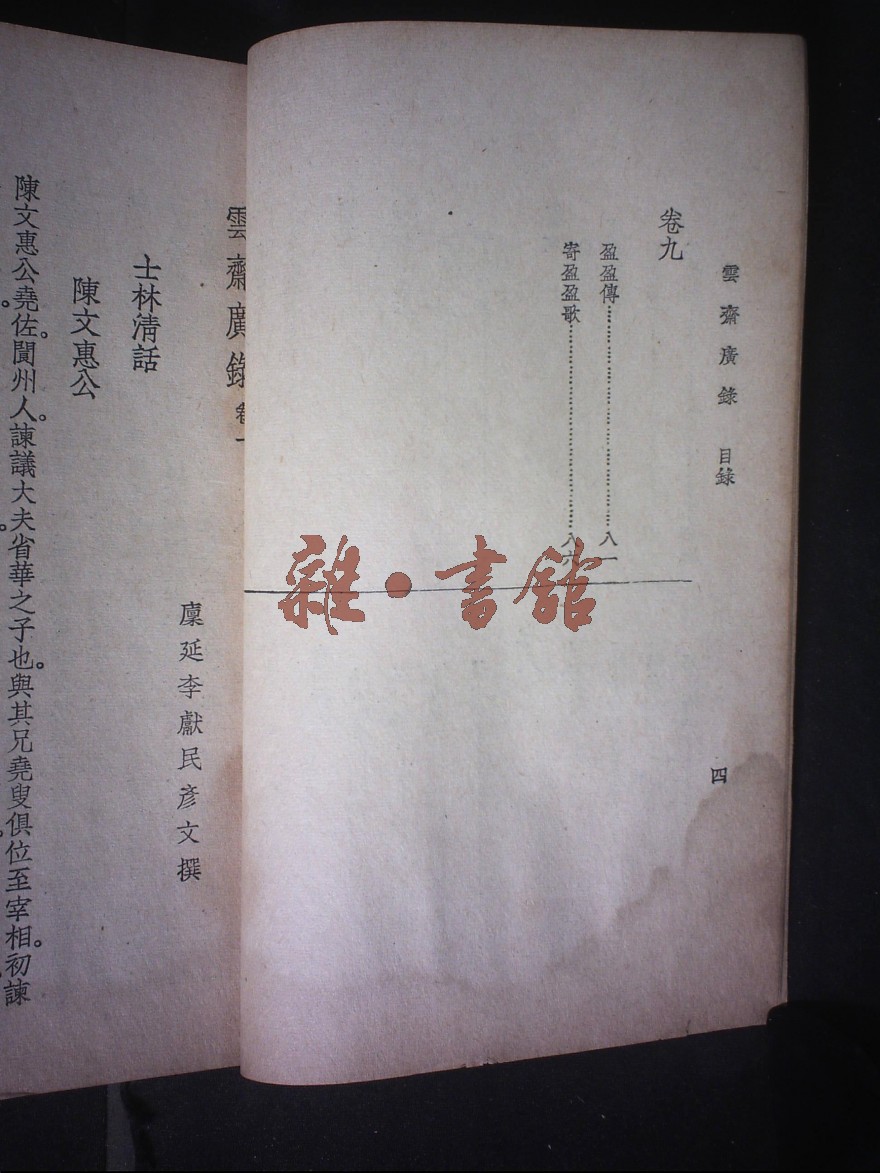 雲齋廣錄 目錄
四
卷九
盈盈傳…………八一
寄盈盈歌…………八六
雜•書館
雲齋廣錄卷一
廩延李獻民彦文撰
士林淸話
陳文惠公
陳文惠公堯佐。閬州人。諫議大夫省華之子也。與其兄堯叟俱位至宰相。初諫